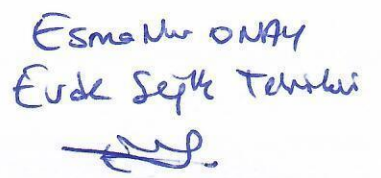 Esma Nur ONAY
Evde Sağlık Teknikeri